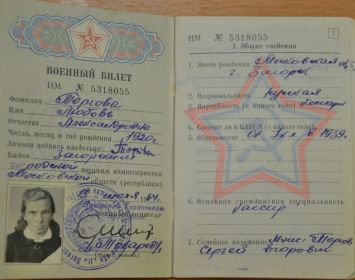 ВОЕННЫЙ БИЛЕТ
НМ № 5318055
Фамилия Торгова
Имя Любовь
Отчество Александровна
Число, месяц и год рождения 1920 г.
Личная подпись владельца
Выдан Загорским
городской военным комиссариатом
Московской области (республики)
64 г.
НМ № 5318055
1
I. Общие сведения
1. Место рождения Московская обл.
г. Загорск
2. Национальность русская
3. Партийность (с какого года)
4. Состоит ли в ВЛКСМ (с какого года)
5. Образование в 1939 г.
6. Основная гражданская специальность
кассир
7. Семейное положение Муж:
Сергей Егорович